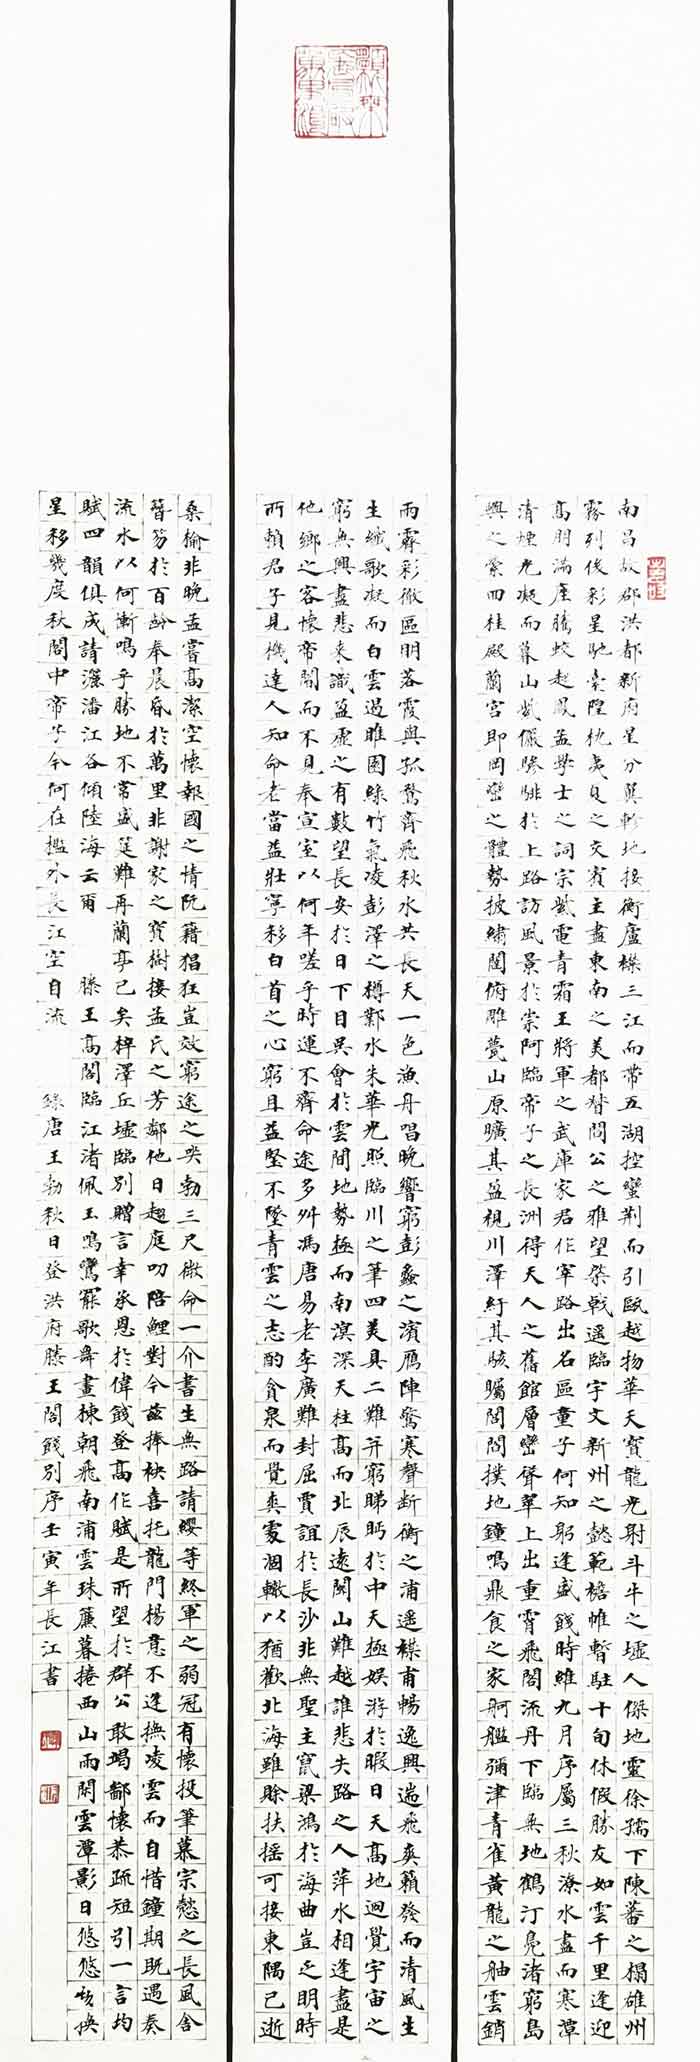 南昌故郡洪都新府星分翼軫地接衡廬襟三江而帶五湖控蠻荊而引甌越物華天寶龍光射斗牛之墟人傑地靈徐孺下陳蕃之榻雄州
霧列俊彩星馳臺隍枕夷夏之交賓主盡東南之美都督閻公之雅望棨戟遥臨宇文新州之懿範襜帷暫駐十旬休假勝友如雲千里逢迎
高朋滿座騰蛟起鳳孟學士之詞宗紫電青霜王將軍之武庫家君作宰路出名區童子何知躬逢盛餞時維九月序屬三秋潦水盡而寒潭
清煙光凝而暮山紫儼驂騑於上路訪風景於崇阿臨帝子之長洲得天人之舊館層巒聳翠上出重霄飛閣流丹下臨無地鶴汀鳧渚窮島
嶼之縈回桂殿蘭宮即岡巒之體勢披繡闥俯雕甍山原曠其盈視川澤紆其駭矚閭閻撲地鐘鳴鼎食之家舸艦彌津青雀黃龍之舳雲銷
雨霽彩徹區明落霞與孤鶩齊飛秋水共長天一色漁舟唱晚響窮彭蠡之濱雁陣驚寒聲斷衡之浦遥襟甫暢逸興遄飛爽籟發而清風生
生纖歌凝而白雲遏睢園綠竹氣凌彭澤之樽鄴水朱華光照臨川之筆四美具二難并窮睇眄於中天極娛游於暇日天高地迥覺宇宙之
窮無興盡悲來識盈虛之有數望長安於日下目吳會於雲間地勢極而南溟深天柱高而北辰遠關山難越誰悲失路之人萍水相逢盡是
他鄉之客懷帝閽而不見奉宣室以何年嗟乎時運不齊命途多舛馮唐易老李廣難封屈賈誼於長沙非無聖主竄梁鴻於海曲豈乏明時
所賴君子見機達人知命老當益壯寧移白首之心窮且益堅不墜青雲之志酌貪泉而覺爽處涸轍以猶歡北海雖賒扶搖可接東隅已逝
桑榆非晚孟嘗高潔空懷報國之情阮藉猖狂豈效窮途之哭勃三尺微命一介書生無路請纓等終軍之弱冠有懷投筆慕宗慤之長風舍
簪笏於百齡奉晨昏於萬里非謝家之寶樹接孟氏之芳鄰他日趨庭叨陪鯉對今茲捧袂喜托龍門楊意不逢撫凌雲而自惜鐘期既遇奏
流水以何慚嗚乎勝地不常盛筵難再蘭亭已矣梓澤丘墟臨別贈言幸承恩於偉餞登高作賦是所望於群公敢竭鄙懷恭疏短引一言均
賦四韻俱成請灑潘江各傾陸海云爾 滕王高閣臨江渚佩玉鳴鸞罷歌舞畫棟朝飛南浦雲珠簾暮捲西山雨閑雲潭影日悠悠物換
星移幾度秋閣中帝子今何在檻外長江空自流 錄唐王勃秋日登洪府滕王閣餞別序壬寅年長江書